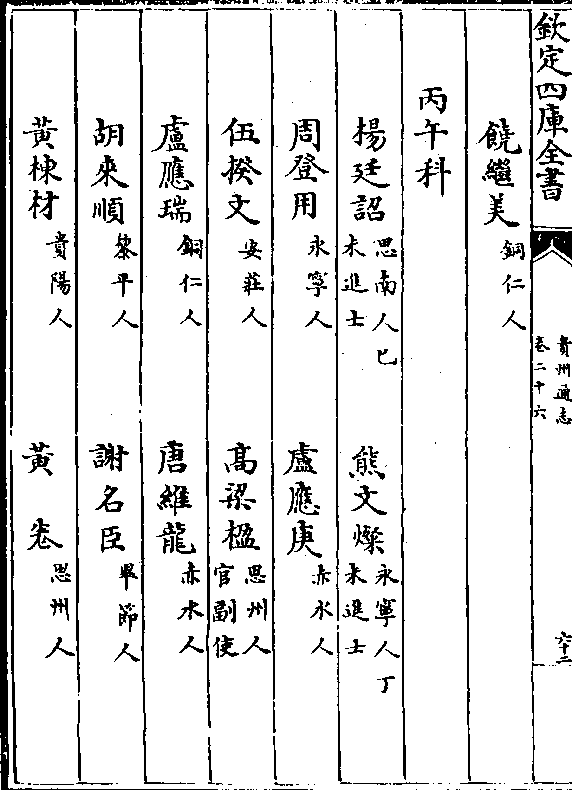 欽定四庫全書
貴州通志
卷二十六
六十二
饒繼美 銅仁人
丙午科
楊廷詔 思南人己未進士 熊文燦 永寧人丁未進士
周登用 永寧人 盧應庚 赤水人
伍揆文 安莊人 高梁楹 思州人官副使
盧應瑞 銅仁人 唐維龍 赤水人
胡來順 黎平人 謝名臣 畢節人
黃棟材 貴陽人 黃卷 思州人